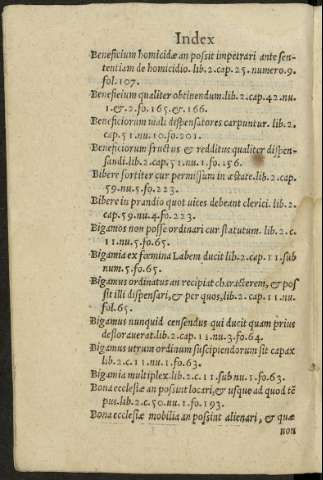 Index
Beneficium homicidæ an possit impetrari ante sen-
tentiam de homicidio. lib. 2. cap. 25. numero. 9.
fol. 107.
Beneficium qualiter obtinendum. lib. 2. cap. 42. nu.
1. & 2. fo. 165. & . 166.
Beneficiorum mali dispensatores carpuntur. lib. 2.
cap. 51. nu. 10. fo. 201.
Beneficiorum fructus & redditus qualiter dispen-
sandi. lib. 2. cap. 51. nu. 1. fo. 156.
Bibere fortiter cur permissum in æstate. lib. 2. cap.
59. nu. 5. fo. 223.
Bibere in prandio quot vices debeant clerici. lib. 2.
cap. 59. nu. 4. fo. 223.
Bigamos non posse ordinari cur statutum. lib. 2. c.
11. nu. 5. fo. 65.
Bigamia ex fœmina Labem ducit lib. 2. cap. 11. sub
num. 5. fo. 65.
Bigamus ordinatus an recipiat characterem, & pos
sit illi dispensari, & per quos, lib. 2. cap. 11. nu.
fol. 65.
Bigamus nunquid censendus qui ducit quam prius
defloraverat. lib. 2. cap. 11. nu. 3. fo. 64.
Bigamus utrum ordinum suscipiendorum sit capax
lib. 2. c. 11. nu. 1. fo. 63.
Bigamia multiplex. lib. 2. c. 11. sub nu. 1. fo. 63.
Bona ecclesiæ an possint locari, & usque ad quod tē
pus. lib. 2. c. 50. nu. 1. fo. 193.
Bona ecclesiæ mobilia an possint alienari, & quæ
non